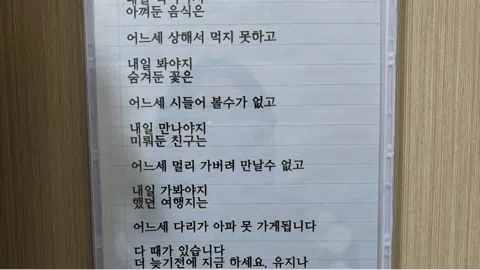 아껴둔 음식은
어느세 상해서 먹지 못하고
내일 봐야지
숨겨둔 꽃은
어느세 시들어 볼수가 없고
내일 만나야지
미뤄둔 친구는
어느세 멀리 가버려 만날수 없고
내일 가봐야지
했던 여행지는
어느세 다리가 아파 못 가게됩니다
다 때가 있습니다
더 늦기전에 지금 하세요, 유지나